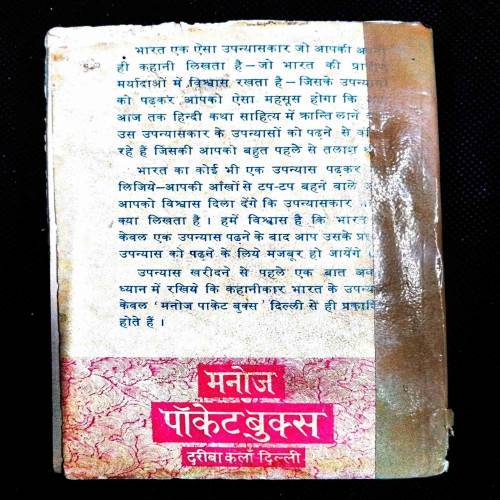 भारत एक ऐसा उपन्यासकार जो आपकी अपनी
ही कहानी लिखता है—जो भारत की प्राचीन
मर्यादाओं में विश्वास रखता है—जिसके उपन्यासों
को पढ़कर आपको ऐसा महसूस होगा कि
आज तक हिन्दी कथा साहित्य में क्रान्ति लाने
उस उपन्यासकार के उपन्यासों को पढ़ने से
रहे हैं जिसकी आपको बहुत पहले से तलाश
भारत का कोई भी एक उपन्यास पढ़कर
लिजिये—आपकी आँखों से टप-टप बहने वाले
आपको विश्वास दिला देंगे कि उपन्यासकार
क्या लिखता है । हमें विश्वास है कि भारत
केवल एक उपन्यास पढ़ने के बाद आप उसके
उपन्यास को पढ़ने के लिये मजबूर हो जायेंगे ।
उपन्यास खरीदने से पहले एक बात
ध्यान में रखिये कि कहानीकार भारत के
केवल 'मनोज पाकेट बुक्स' दिल्ली से ही
होते हैं ।
मनोज
पॉकेट बुक्स
दरीबा कलाँ दिल्ली